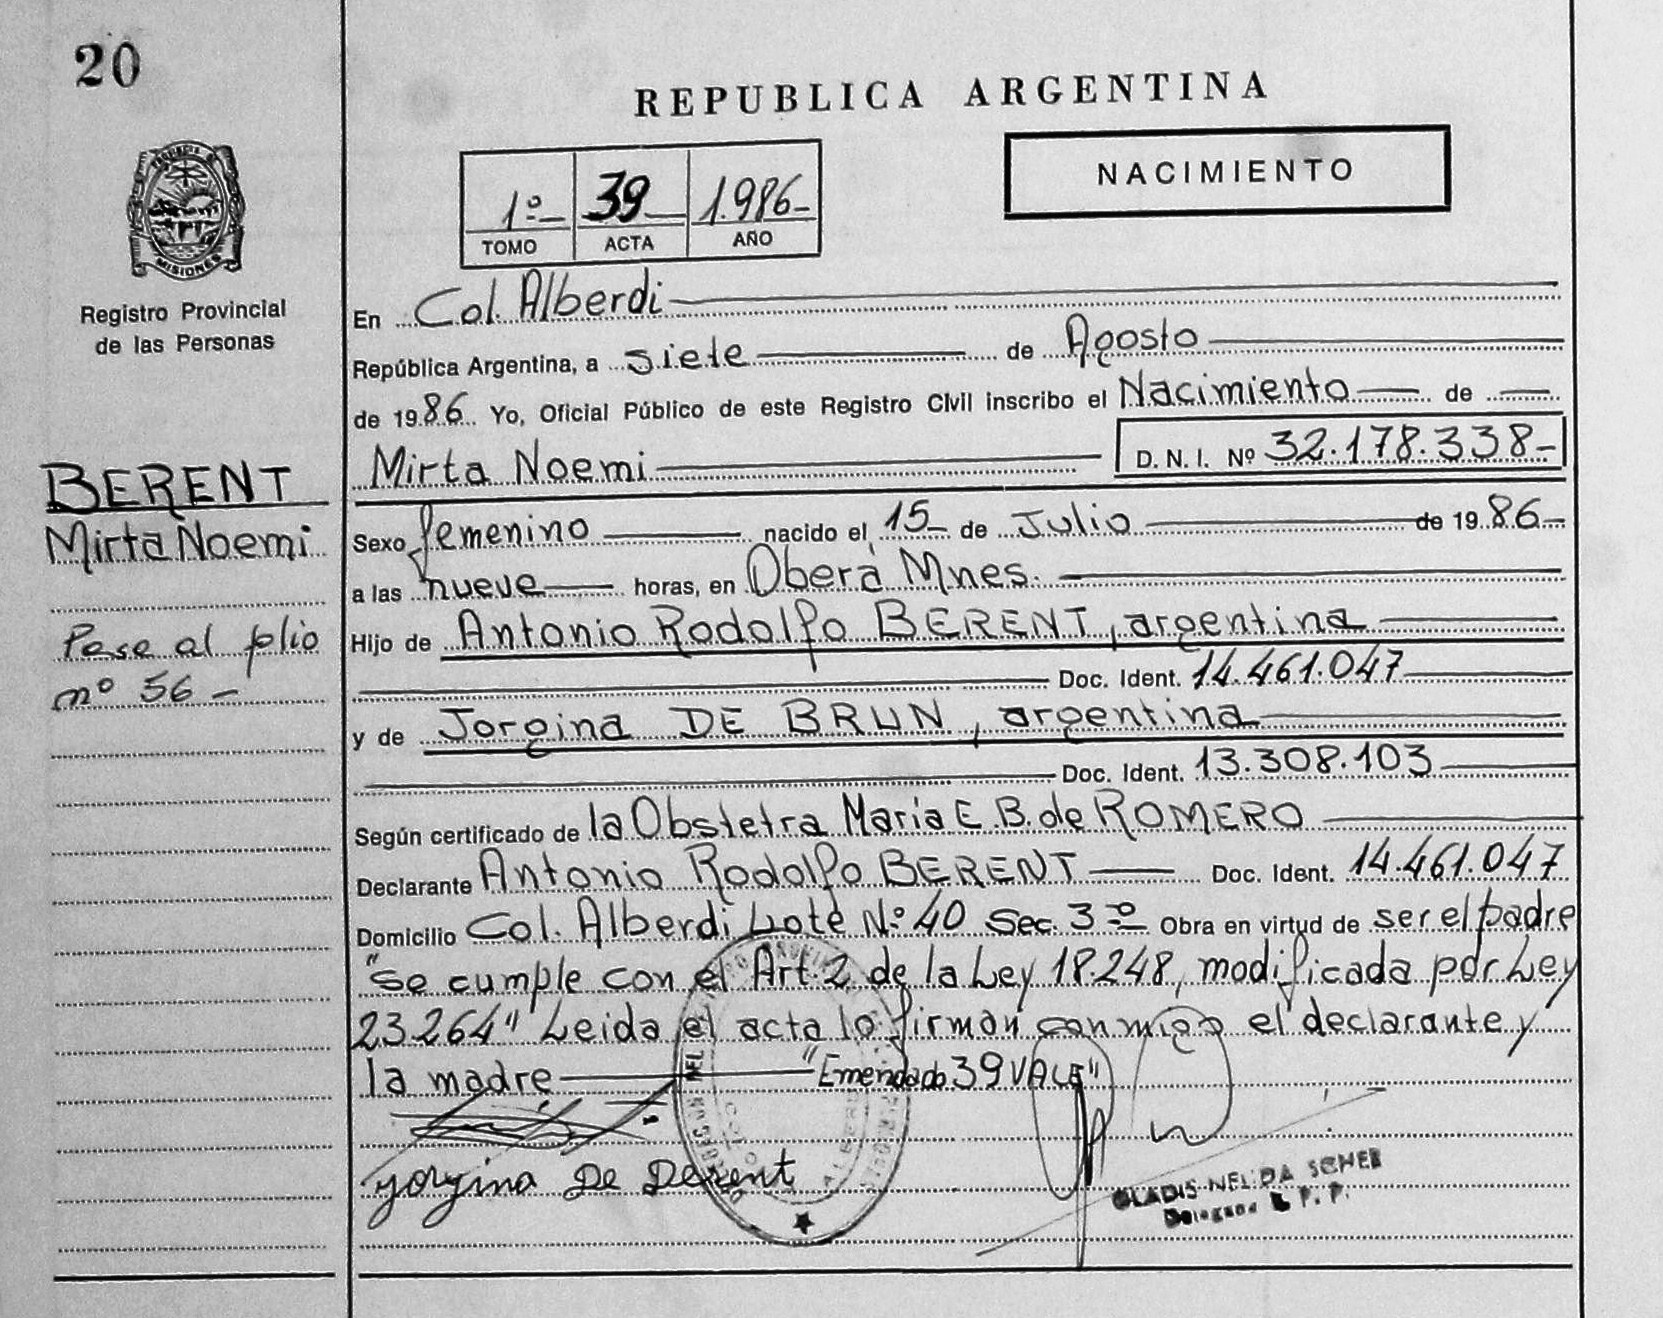 20
REPUBLICA ARGENTINA
NACIMIENTO
1º 39 1.986-
TOMO ACTA AÑO
MISIONES
Registro Provincial
de las Personas
BERENT
Mirta Noemi
Pase al folio
nº 56 -
En Col. Alberdi
República Argentina, a siete de Agosto
de 1986 Yo, Oficial Público de este Registro Civil inscribo el Nacimiento de
Mirta Noemi D. N. I. Nº 32.178.338-
Sexo femenino nacido el 15 de Julio de 1986
a las nueve horas, en Oberá Mnes.
Hijo de Antonio Rodolfo BERENT, argentina
Doc. Ident. 14.461.047
y de Jorgina DE BRUN, argentina
Doc. Ident. 13.308.103
Según certificado de la Obstetra Maria E. B. de ROMERO
Declarante Antonio Rodolfo BERENT Doc. Ident. 14.461.047
Domicilio Col. Alberdi Lote Nº 40 Sec. 3º Obra en virtud de ser el padre
"se cumple con el Art. 2 de la Ley 18.248, modificada por Ley
23.264" Leida el acta lo firman conmigo el declarante y
la madre "Emendado 39 VALE"
yorgina De Berent
GLADIS NELIDA SCHER
Delegada R. P. P.